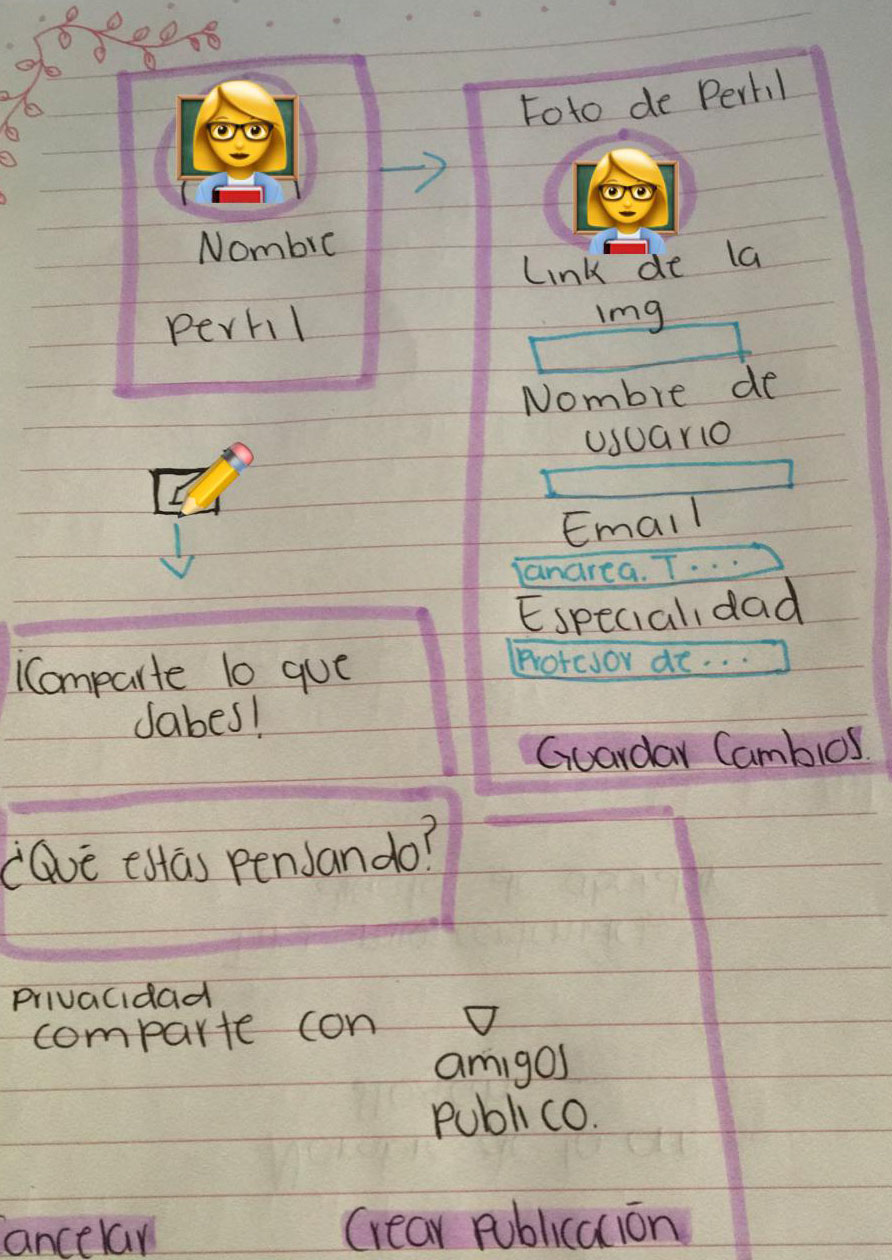 Nombre
Perfil
Foto de Perfil
Link de la
img
Nombre de
usuario
Email
anarea. T...
Especialidad
Profesor de...
Guardar Cambios.
¡Comparte lo que
sabes!
¿Qué estás pensando?
Privacidad
comparte con
amigos
publico.
Cancelar
Crear publicación